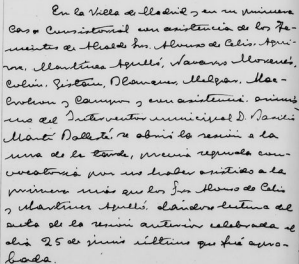 En la Villa de Madrid y en su primera
Casa Consistorial con asistencia de los Te-
nientes de Alcalde Sres. Alonso de Celis, Agui-
rre, Martínez Agulló, Navarro Morenés,
Colón, Gistau, Blanquer, Melgar, Mac-
Crohon y Campos y con asistencia asimis-
mo del Interventor municipal D.
Martí Ballesté se abrió la sesión a la
una de la tarde, previa segunda con-
vocatoria por no haber asistido a la
primera más que los Sres Alonso de Celis
y Martínez Agulló, dándose lectura del
acta de la sesión anterior celebrada el
día 25 de junio último que fué apro-
bada.